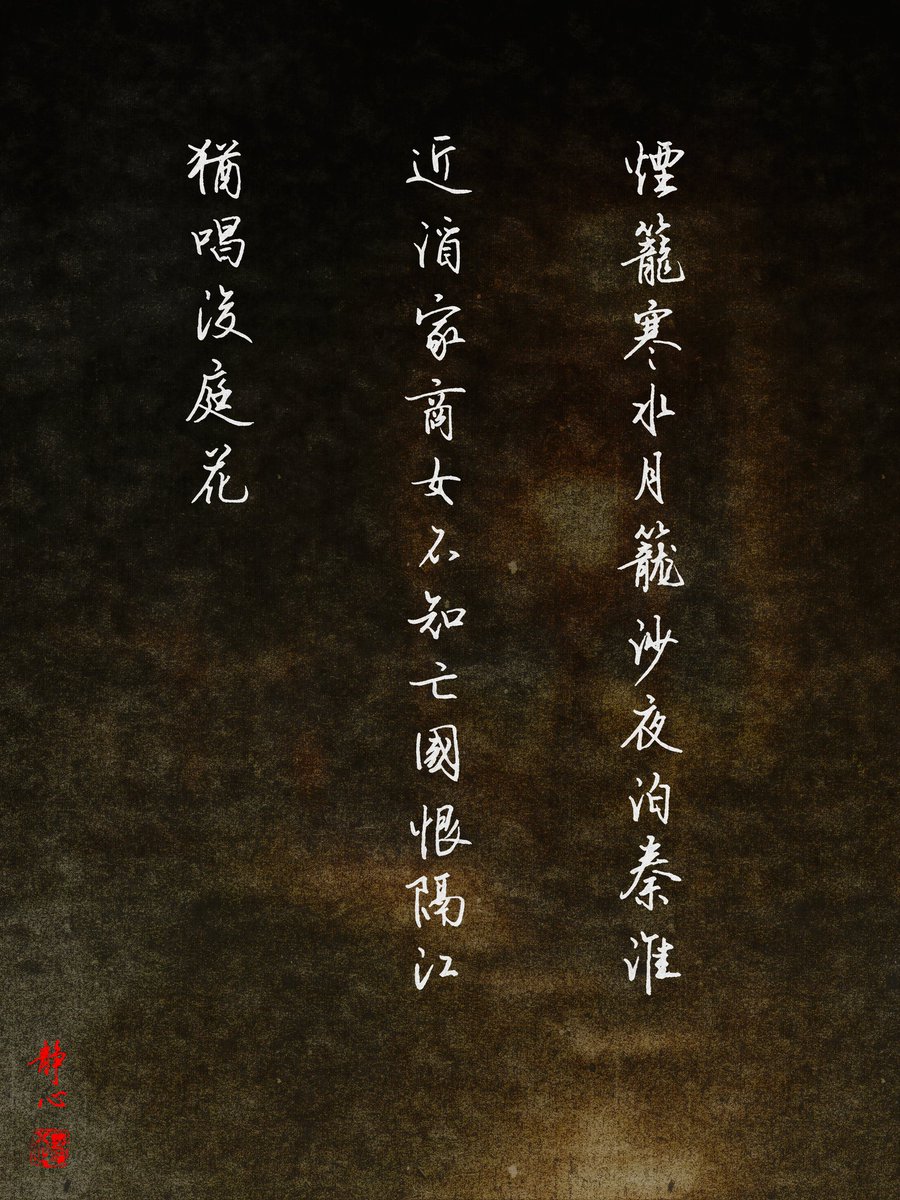 煙籠寒水月籠沙夜泊秦淮
近酒家商女不知亡國恨隔江
猶唱後庭花
靜心